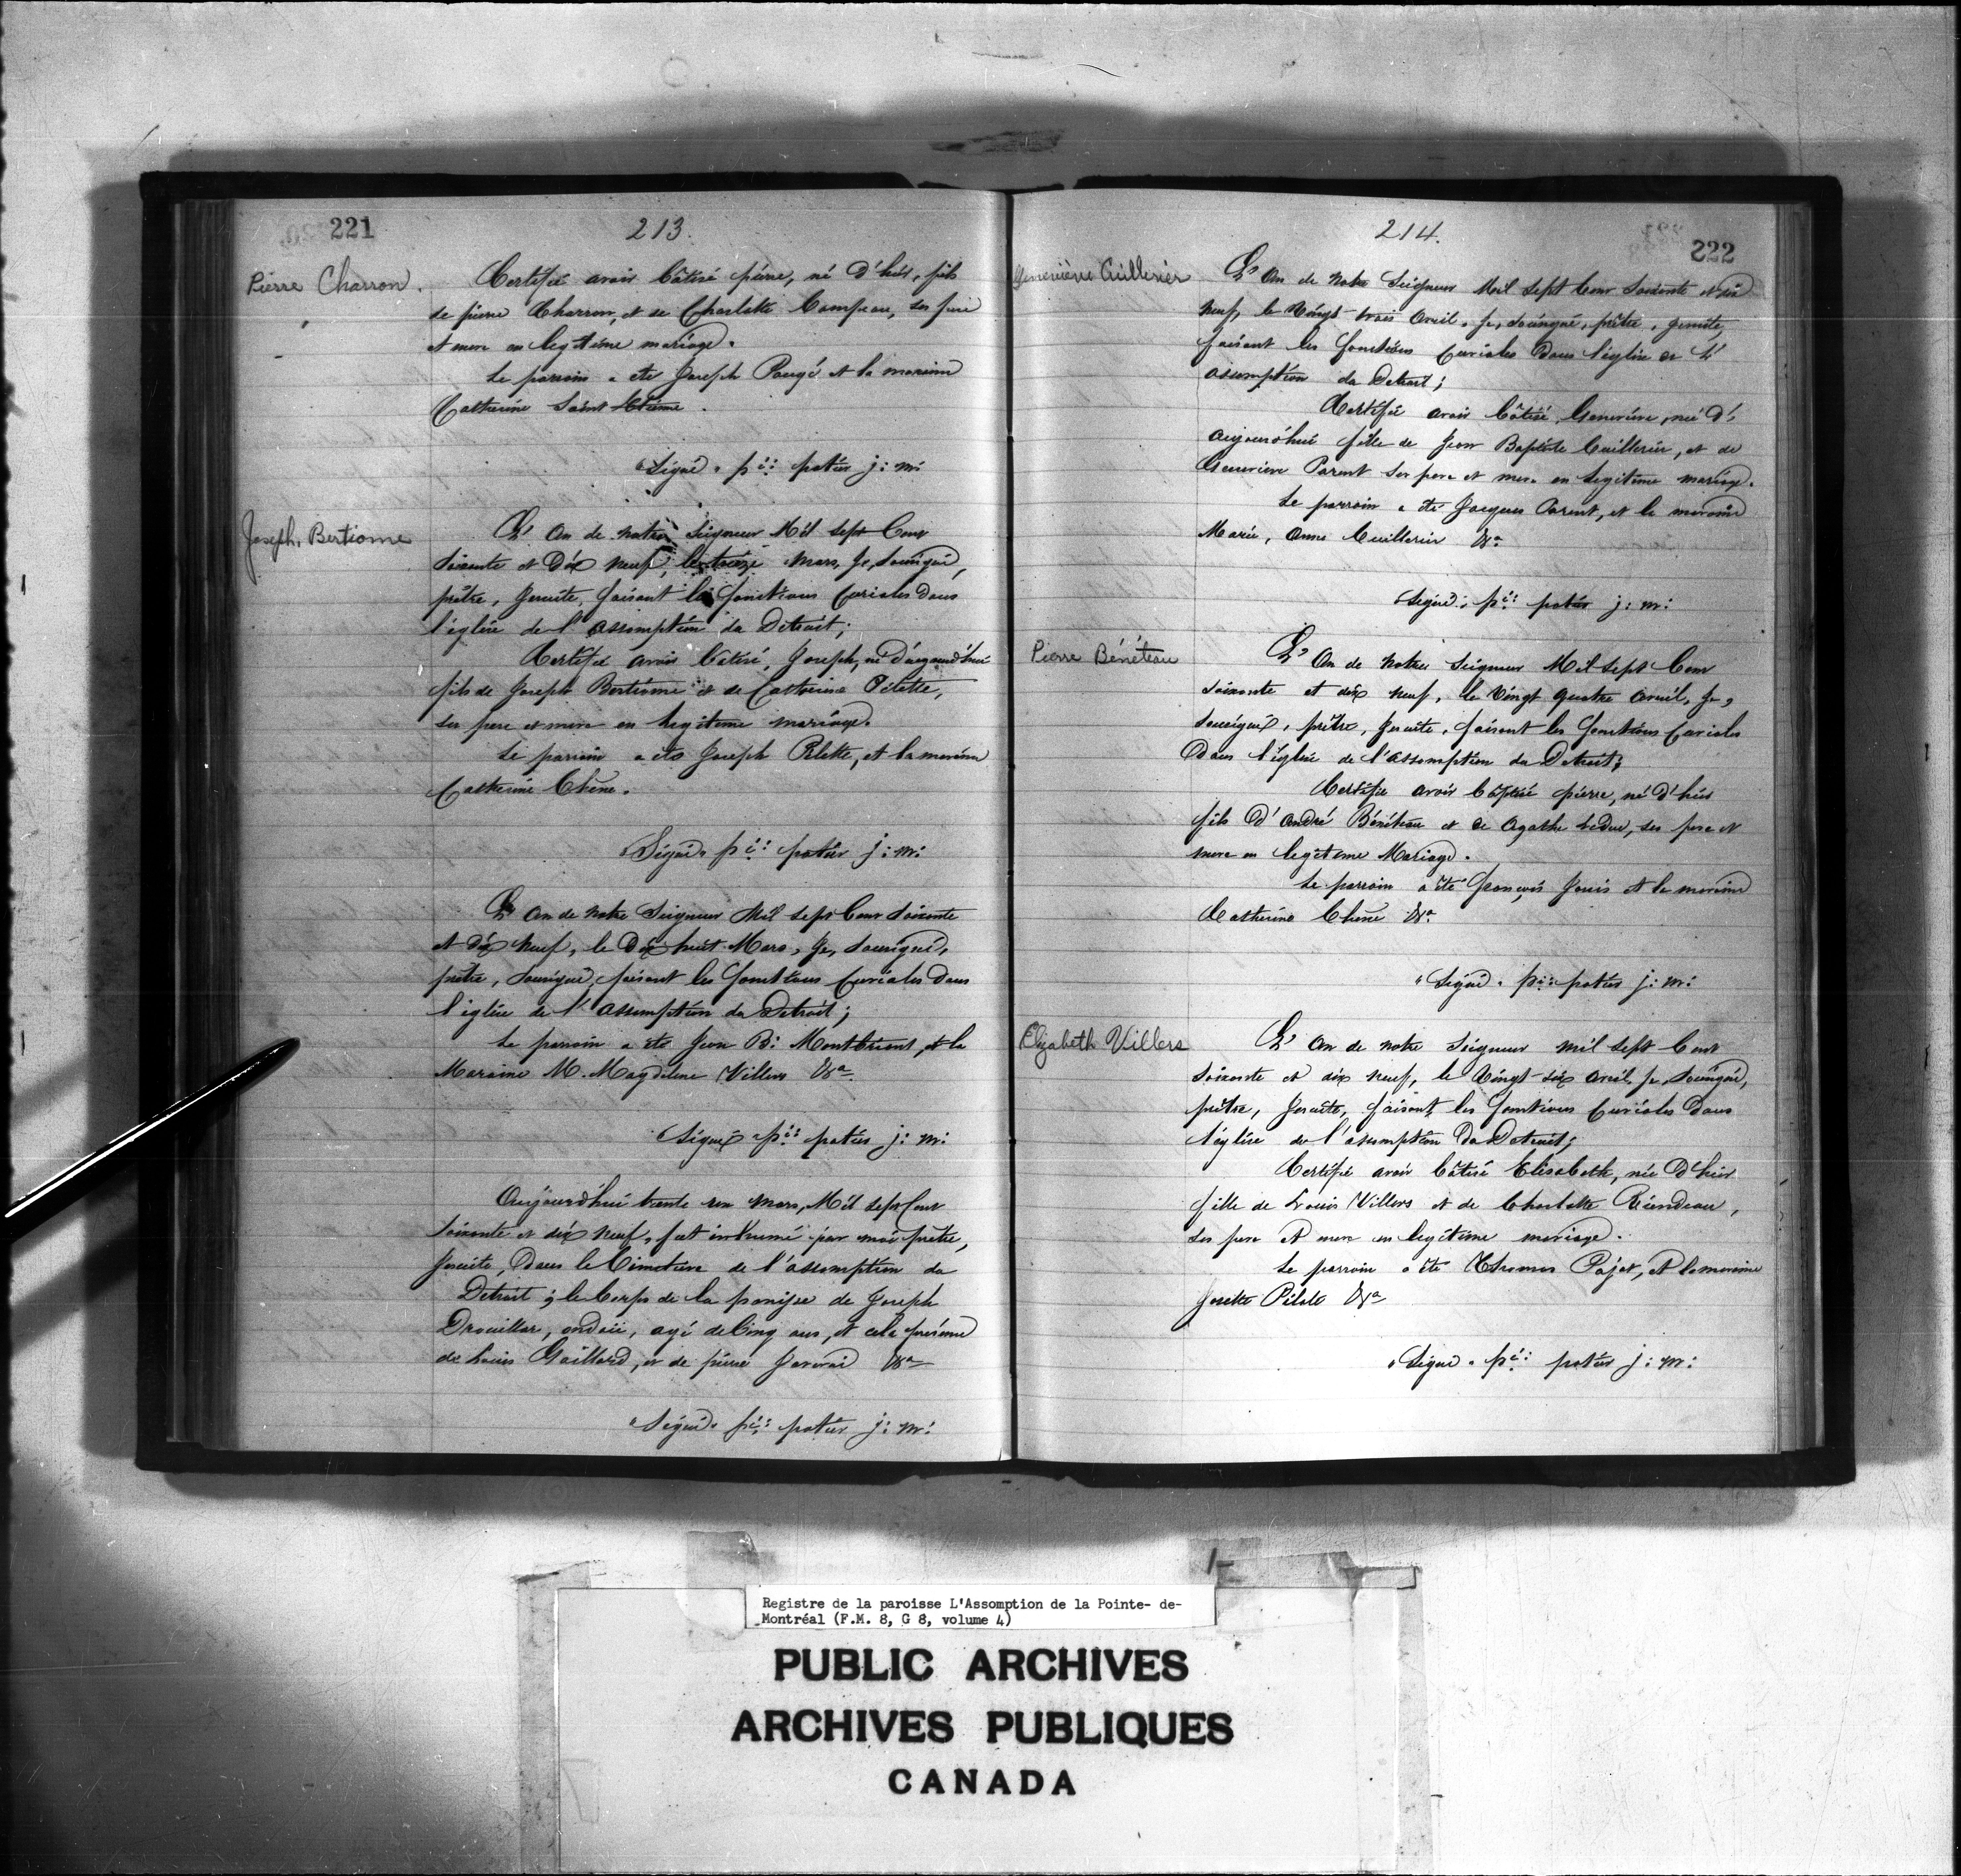 221
213.
Pierre Charron.
Certifié avoir bâtisé pierre, né d'hier, fils
de pierre Charron, et de Charlotte Campeau, ses pere
et mere en legitime mariage.
Le parrain a été Joseph Pougé et la maraine
Catherine Saint Etienne.
"Signé" pi: potier j: m:
Joseph Bertiome
L'An de notre Seigneur Mil sept Cent
soixante et Dix neuf, le treize Mars, Je, soussigné,
prêtre, Jesuite, faisant les fonctions Curiales dans
l'église de l'assomption du Détroit;
Certifié avoir bâtisé, Joseph, né d'aujourd'hui
fils de Joseph Bertiome et de Catherine Pilette,
ses pere et mere en legitime mariage.
Le parrain a été Joseph Pilette, et la maraine
Catherine Chêne.
"Signé" pi: potier j: m:
L'An de notre Seigneur Mil sept Cent soixante
et dix neuf, le Dix huit Mars, Je, soussigné,
prêtre, soussigné, faisant les fonctions Curiales dans
l'église de l'assomption du Détroit;
Le parrain a été Jean B: Montbriant, et la
Maraine M. Magdelene Villers &a
Signé pi: potier j: m:
Aujourd'hui trente un Mars, Mil sept Cent
soixante et dix neuf, fut inhumé par moi prêtre,
Jesuite, Dans le Cimetiere de l'assomption du
Detroit; le Corps de la panise de Joseph
Drouillar, ondoié, agé de Cinq ans, et cela présence
de Louis Gaillard, et de pierre &a
"Signé" pi: potier j: m:
214.
222
Geneviève Cuillerier
L'An de notre Seigneur Mil sept Cent soixante et dix
neuf, le Vingt-trois Avril, Je, soussigné, prêtre, Jesuite,
faisant les fonctions Curiales Dans l'église de L'
assomption du Detroit;
Certifié avoir bâtisé Genevieve, née d'
aujourd'hui fille de Jean Baptiste Cuillerier, et de
Genevieve Parent ses pere et mere en legitime mariage.
Le parrain a été Jacques Parent, et la maraine
Marie, Anne Cuillerier &a
"Signé" pi: potier j: m:
Pierre Bénéteau
L'An de Notre Seigneur Mil sept Cent
soixante et dix neuf, le Vingt quatre Avril, Je,
soussigné, prêtre, Jesuite, faisant les fonctions Curiales
Dans l'église de l'assomption du Detroit;
Certifié avoir bâptisé pierre, né d'hier
fils d'André Bénéteau et de Agathe Leduc, ses pere et
mere en legitime Mariage.
Le parrain a été François Janis et la maraine
Catherine Chêne &a
"Signé" pi: potier j: m:
Elizabeth Villers
L'An de notre Seigneur mil sept Cent
soixante et dix neuf, le Vingt-six Avril, Je, soussigné,
prêtre, Jesuite, faisant les fonctions Curiales Dans
l'église de l'assomption Du Detroit;
Certifié avoir bâtisé Elisabeth, née d'hier
fille de Louis Villers et de Charlotte Riendeau,
ses pere et mere en legitime mariage.
Le parrain a été Thomas Pajot, et la maraine
Josette Pilete &a
"Signé" pi: potier j: m:
Registre de la paroisse L'Assomption de la Pointe- de-
Montréal (F.M. 8, G 8, volume 4)
PUBLIC ARCHIVES
ARCHIVES PUBLIQUES
CANADA